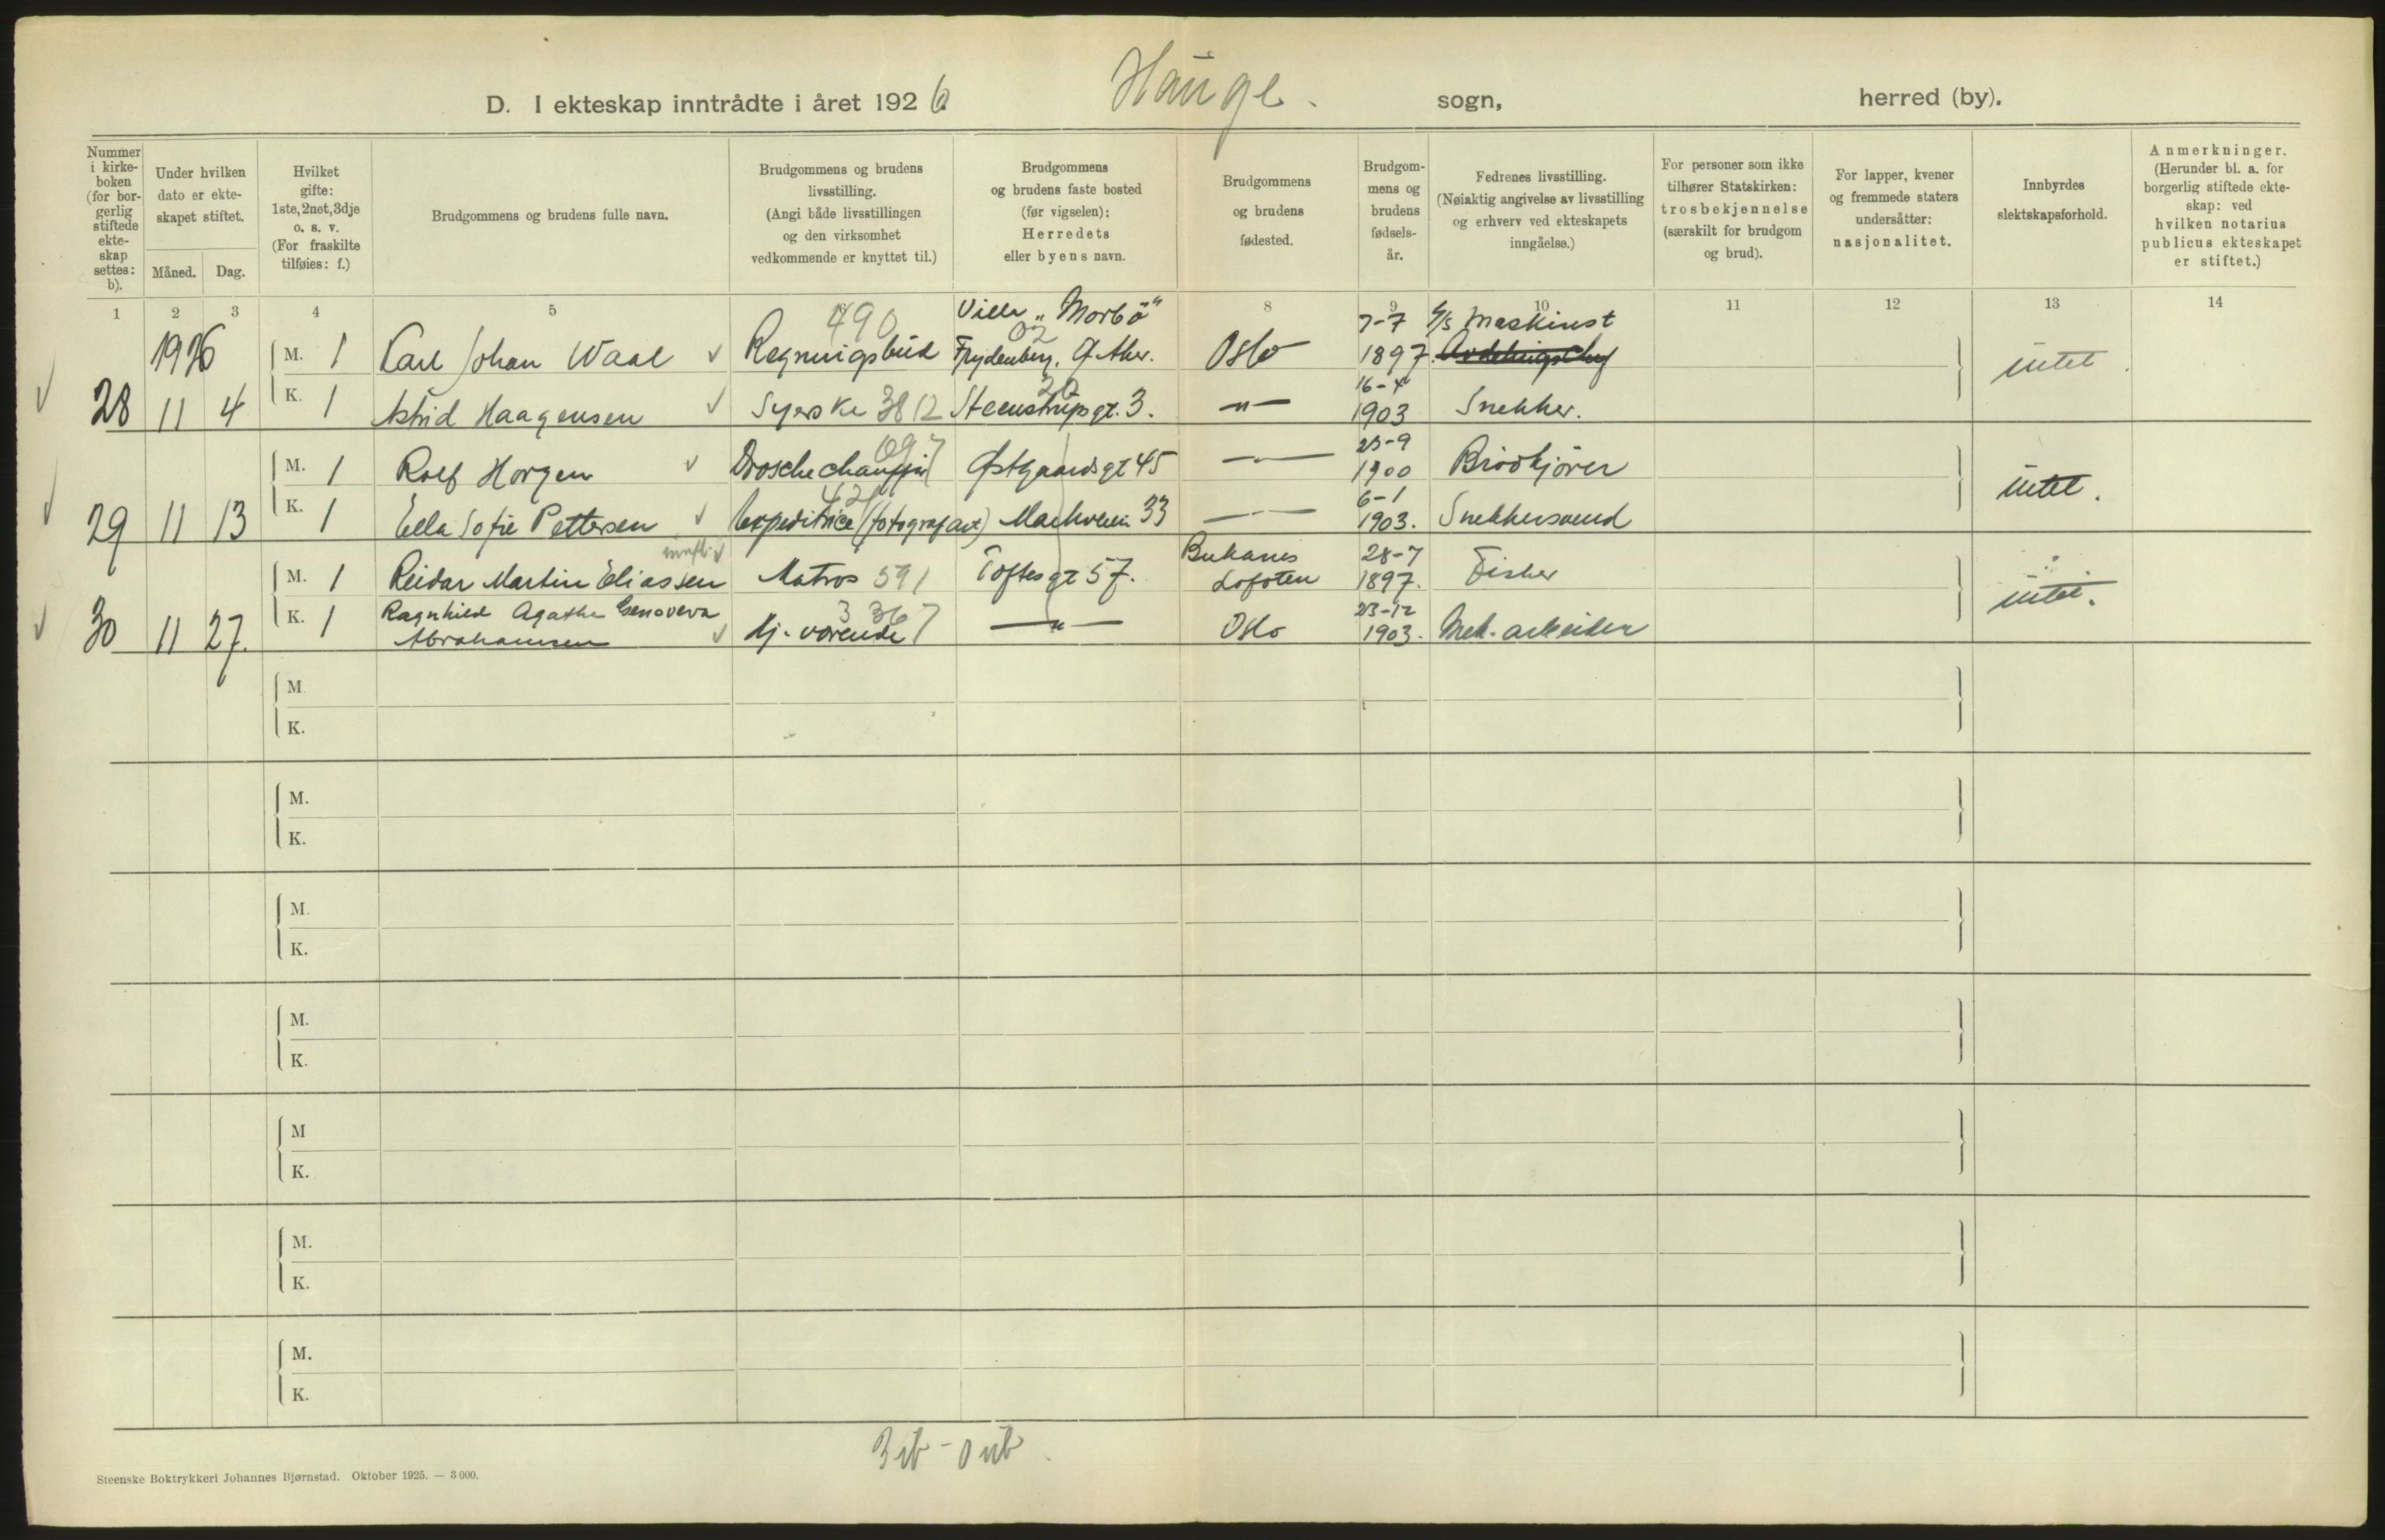 D. I ekteskap inntrådte i året 1926 Hauge. sogn, herred (by).
Nummer i kirkeboken (for borgerlig stiftede ekteskap settes: b).
Under hvilken dato er ekteskapet stiftet.
Måned. Dag.
Hvilket gifte: 1ste, 2net, 3dje o. s. v. (For fraskilte tilføies: f.)
Brudgommens og brudens fulle navn.
Brudgommens og brudens livsstilling. (Angi både livsstillingen og den virksomhet vedkommende er knyttet til.)
Brudgommens og brudens faste bosted (før vigselen): Herredets eller byens navn.
Brudgommens og brudens fødested.
Brudgommens og brudens fødselsår.
Fedrenes livsstilling. (Nøiaktig angivelse av livsstilling og erhverv ved ekteskapets inngåelse.)
For personer som ikke tilhører Statskirken: trosbekjennelse (særskilt for brudgom og brud).
For lapper, kvener og fremmede staters undersåtter: nasjonalitet.
Innbyrdes slektskapsforhold.
Anmerkninger. (Herunder bl. a. for borgerlig stiftede ekteskap: ved hvilken notarius publicus ekteskapet er stiftet.)
1 2 3 4 5 8 9 10 11 12 13 14
1926 M. 1 Carl Johan Waal Regningsbud 490 Villa "Morbo" Frydenberg, Ø. Aker. 02 Oslo 7-7 1897 Maskinist intet
28 11 4 K. 1 Astrid Haagensen Syerske 3812 Steenstrupsgt. 3. 20 -"- 16-4 1903 Snekker.
M. 1 Rolf Horgen Droschechauffør 097 Østgaardsgt 45 -"- 25-9 1900 Brødkjører intet.
29 11 13 K. 1 Ella Sofie Pettersen Expeditrice (fotograf art) Markveien 33 -"- 6-1 1903. Snekkersvend
M. 1 Reidar Martin Eliassen innfl. Matros 591 Toftesgt 57. Buksnes Lofoten 28-7 1897. Fisker intet.
30 11 27. K. 1 Ragnhild Agathe Genoveva Abrahamsen Hj. værende 3367 -"- Oslo 23-12 1903. Mek. arbeider
M.
K.
M.
K.
M.
K.
M.
K.
M
K.
M.
K.
M.
K.
Steenske Boktrykkeri Johannes Bjørnstad. Oktober 1925. — 3000.